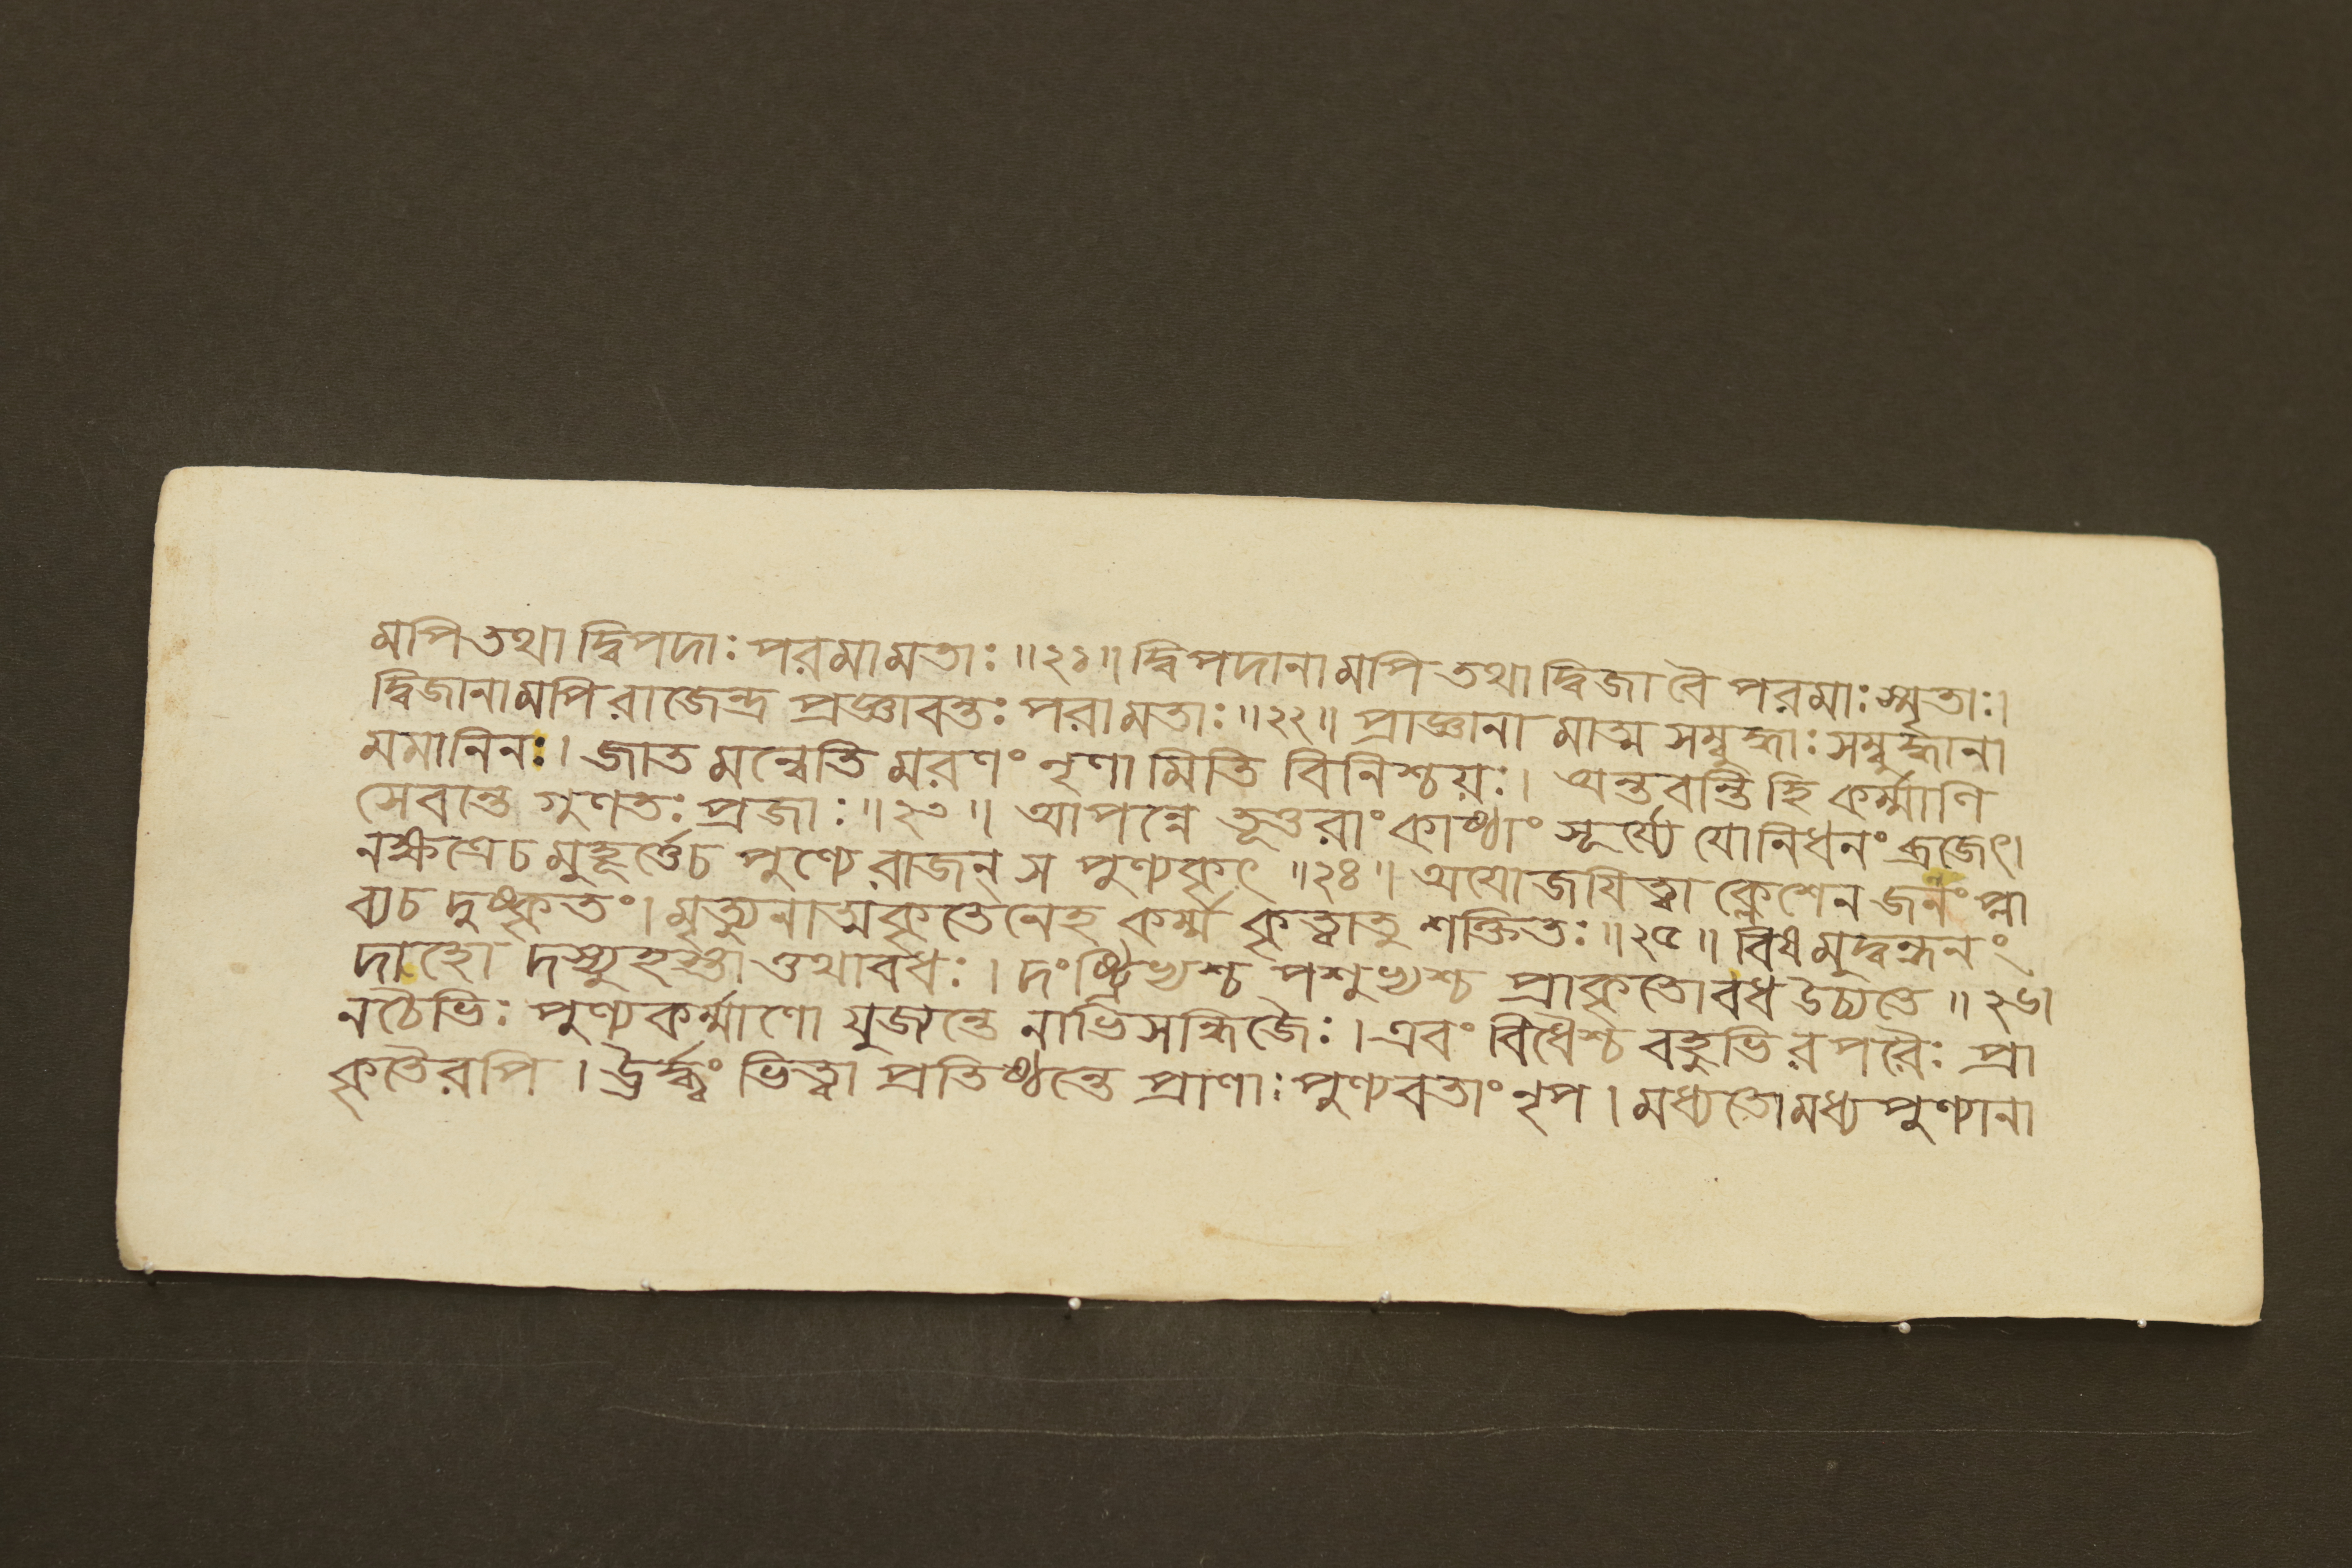 মপি তথা দ্বিপদাঃ পরমামতাঃ ॥২১॥ দ্বিপদানামপি তথা দ্বিজা বৈ পরমাঃ স্মৃতাঃ।
দ্বিজানামপি রাজেন্দ্র প্রজ্ঞাবন্তঃ পরামতাঃ ॥২২॥ প্রাজ্ঞানা মাত্ম সম্বুদ্ধাঃ সম্বুদ্ধানা
মমানিনঃ। জাত মন্বেতি মরণং নৃণা মিতি বিনিশ্চয়ঃ। অন্তবন্তি হি কর্ম্মাণি
সেবান্ত গুণতঃ প্রজাঃ ॥২৩॥ আপন্নে তূওরাং কাষ্ঠাং সূর্য্যে যোনিধনং ব্রজেৎ।
নক্ষত্রেচ মুহূর্ত্তেচ পুণ্যে রাজন্ স পুণ্যকৃৎ ॥২৪॥ অযোজযিত্বা ক্লেশেন জনং প্লা
ব্যচ দুষ্কৃতং। মৃত্যুনাত্মকৃতেনেহ কর্ম্ম কৃত্বাতু শক্তিতঃ ॥২৫॥ বিষমুদ্বন্ধনং
দাহো দস্যুহস্তা ওথাবধঃ। দংষ্ট্রিভ্যশ্চ পশুভ্যশ্চ প্রাকৃতোবধ উচ্যতে ॥২৬।
নচৈভিঃ পুণ্যকর্ম্মাণো যুজ্যন্তে নাভিসন্ধিজৈঃ। এবং বিধৈশ্চ বহুভিরপরৈঃ প্রা
কৃতৈরপি। ঊর্দ্ধ্বং ভিত্বা প্রতিষ্ঠন্তে প্রাণাঃ পুণ্যবতাং নৃপ। মধ্যতোমধ্যপুণ্যানা